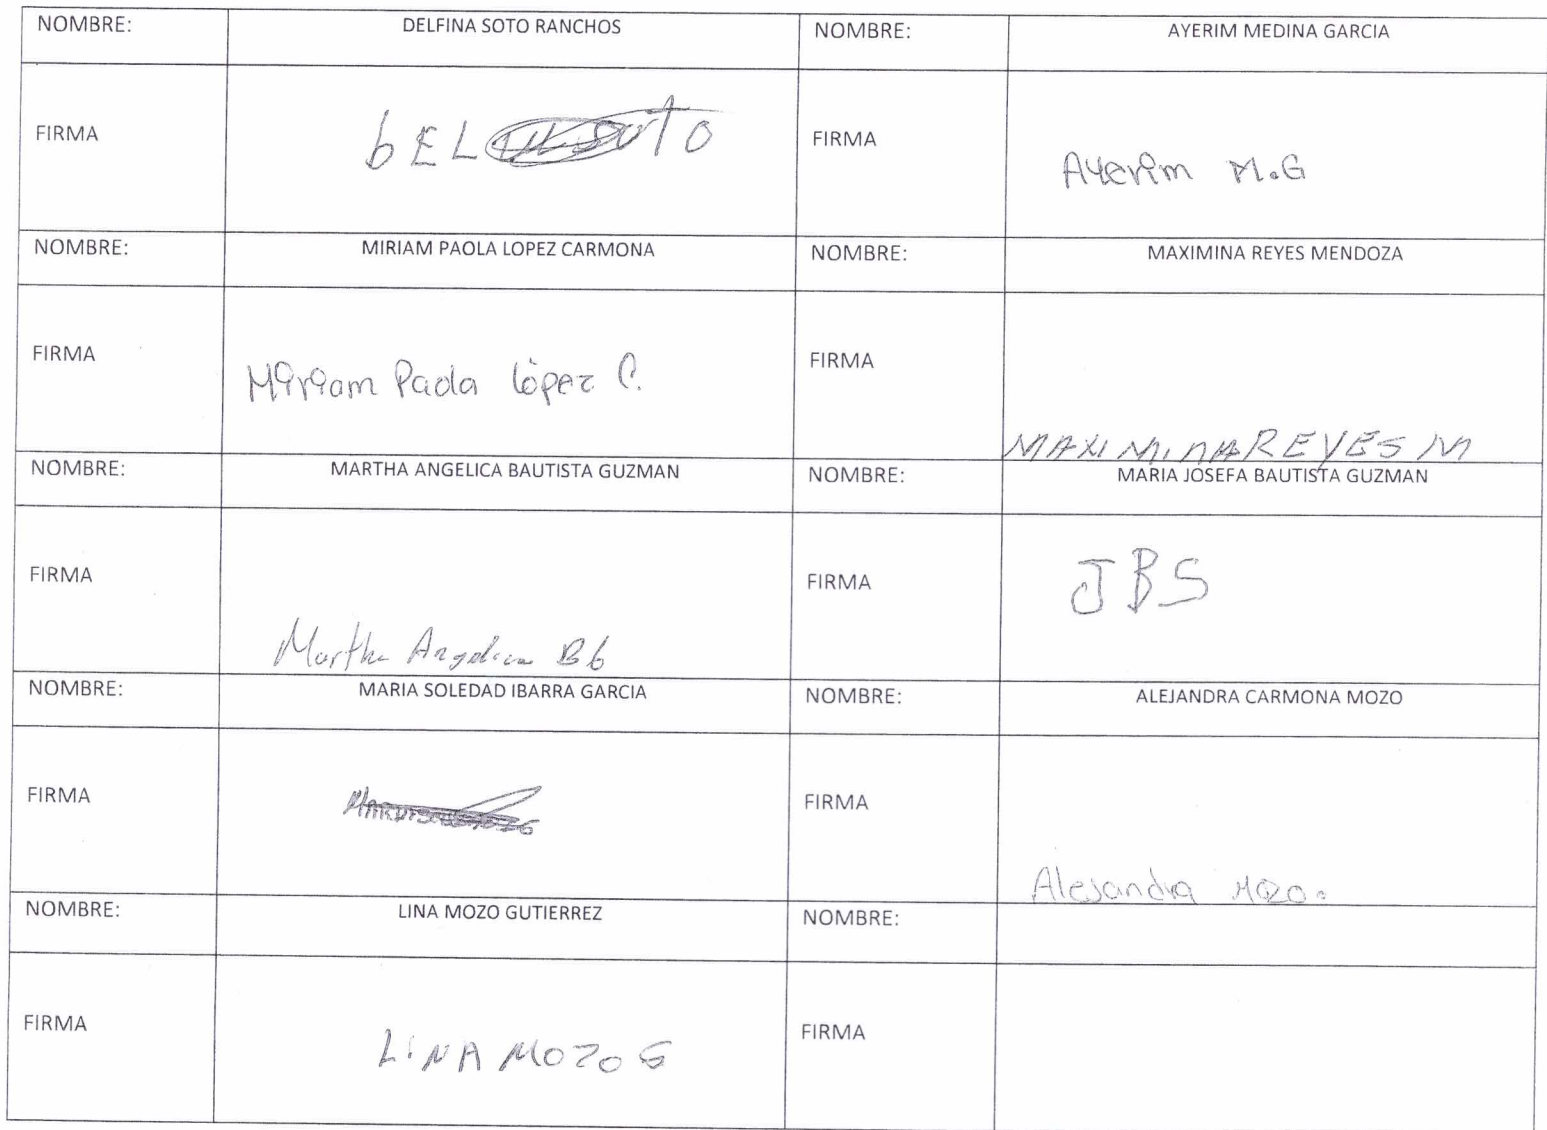 NOMBRE: DELFINA SOTO RANCHOS NOMBRE: AYERIM MEDINA GARCIA
FIRMA FIRMA
Ayerim M.G
NOMBRE: MIRIAM PAOLA LOPEZ CARMONA NOMBRE: MAXIMINA REYES MENDOZA
FIRMA Miriam Paola López C. FIRMA
MAXIMINA REYES M
NOMBRE: MARTHA ANGELICA BAUTISTA GUZMAN NOMBRE: MARIA JOSEFA BAUTISTA GUZMAN
FIRMA FIRMA JBS
Martha Angelica B6
NOMBRE: MARIA SOLEDAD IBARRA GARCIA NOMBRE: ALEJANDRA CARMONA MOZO
FIRMA FIRMA
Alejandra Mozo.
NOMBRE: LINA MOZO GUTIERREZ NOMBRE:
FIRMA LINA MOZO G FIRMA